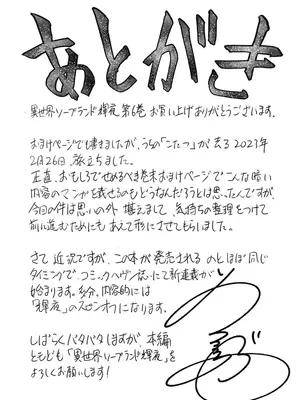 あとがき
異世界ソープランド輝夜 第6巻 お買い上げありがとうございます。
おまけページでも書きましたが、うちの「こたつ」が去る2023年
2月26日、旅立ちました。
正直、おもしろで攻めるべき巻末おまけページでこんな暗い
内容のマンガを載せるのもどうなんだろうとは思ったんですが、
今回の件は思いの外 堪えまして、気持ちの整理をつけて
前に進むためにもあえて形にさせてもらいました。
さて近況ですが、この本が発売されるのとほぼ同じ
タイミングで、コミックヘヴン誌にて新連載が
始まります。多分、内容的には
「輝夜」のスピンオフになります。
しばらくバタバタしますが、本編
ともども「異世界ソープランド輝夜」を
よろしくお願いします!